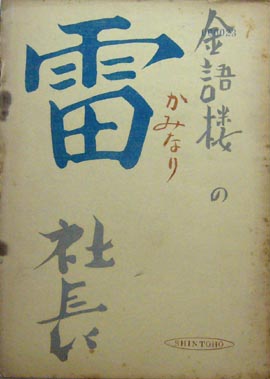 金語楼の
かみなり
雷
社長
SHINTOHO